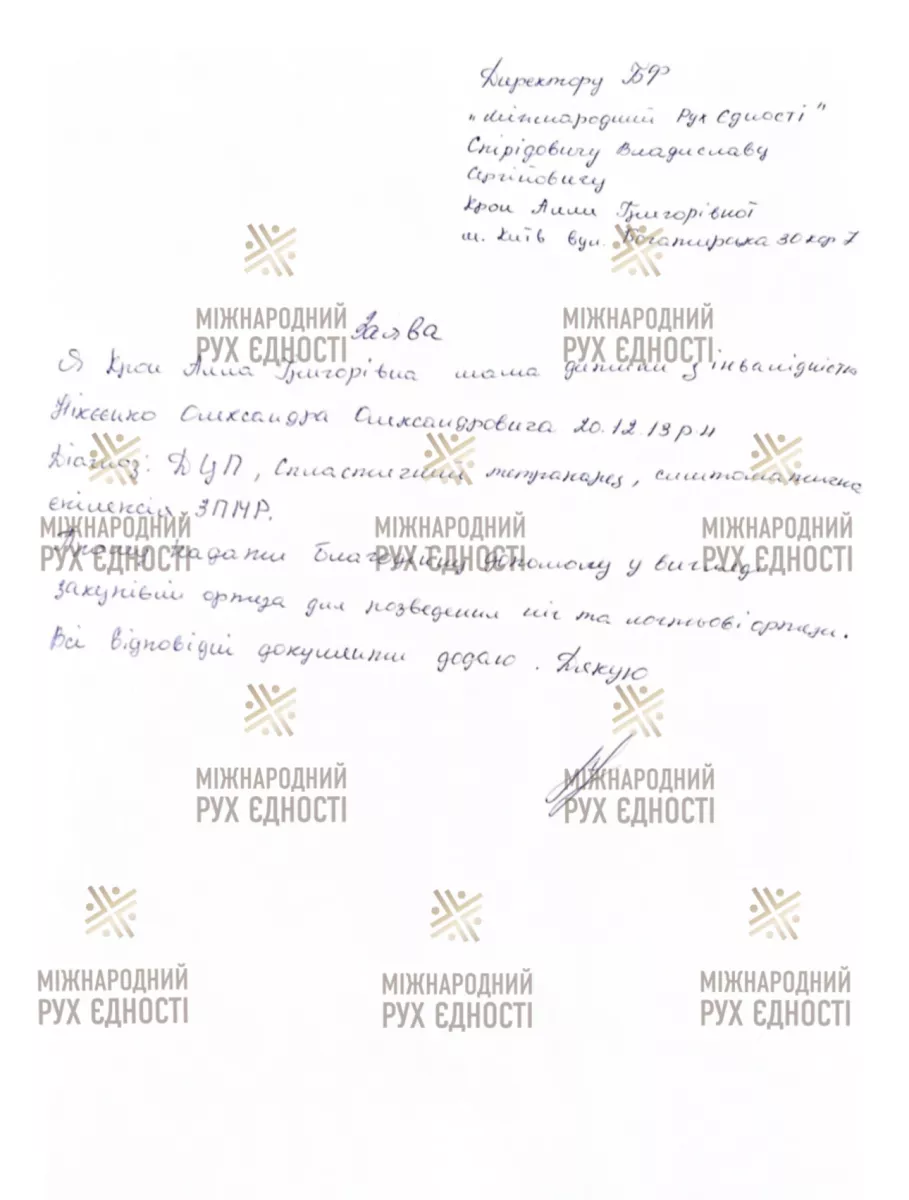 Директору БФ
"Міжнародний Рух Єдності"
Спірідовичу Владиславу
Сергійовичу
Крои Алли Григорівної
м. Київ вул. Богатирська 30 кв 7
МІЖНАРОДНИЙ РУХ ЄДНОСТІ
МІЖНАРОДНИЙ РУХ ЄДНОСТІ
Заява
Я Крои Алла Григорівна мама дитини з інвалідністю
Олександра Олександровича 20.12.13 р.н
Діагноз: ДЦП, Спластичний тетрапарез, симптоматична
епілепсія, ЗПМР.
МІЖНАРОДНИЙ РУХ ЄДНОСТІ
МІЖНАРОДНИЙ РУХ ЄДНОСТІ
МІЖНАРОДНИЙ РУХ ЄДНОСТІ
Прошу надати благодійну допомогу у вигляді
закупівлі ортеза для розведення ніг та ліктьові ортези.
Всі відповідні документи додаю. Дякую
МІЖНАРОДНИЙ РУХ ЄДНОСТІ
МІЖНАРОДНИЙ РУХ ЄДНОСТІ
МІЖНАРОДНИЙ РУХ ЄДНОСТІ
МІЖНАРОДНИЙ РУХ ЄДНОСТІ
МІЖНАРОДНИЙ РУХ ЄДНОСТІ